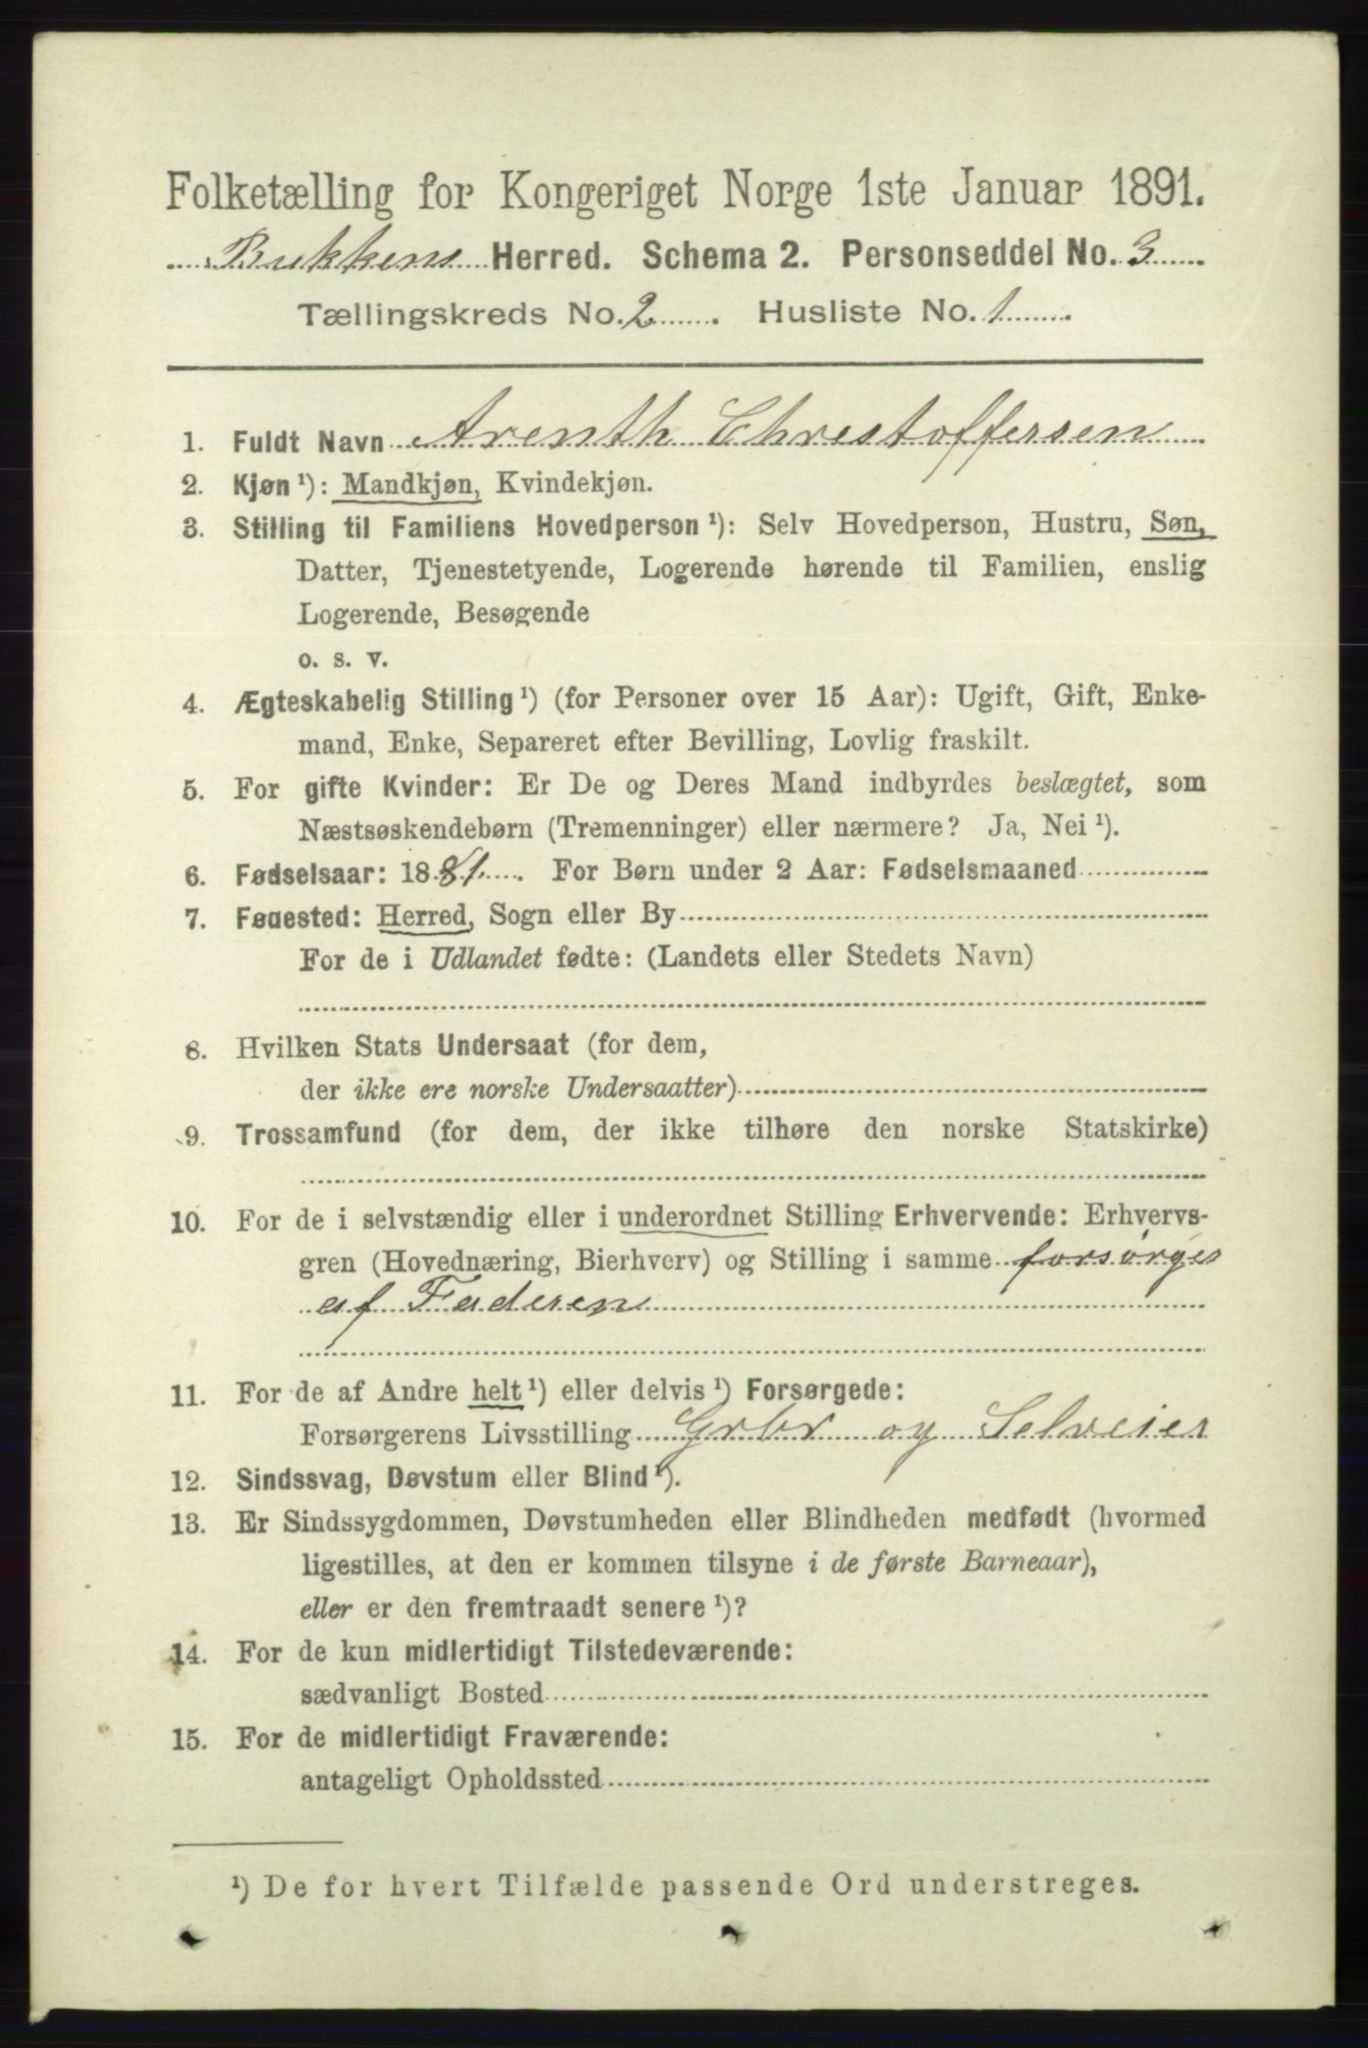 Folketælling for Kongeriget Norge 1ste Januar 1891.
Bukkens Herred. Schema 2. Personseddel No. 3
Tællingskreds No. 2 . Husliste No. 1 .
1. Fuldt Navn Arenth Chrestoffersen
2. Kjøn ¹): Mandkjøn, Kvindekjøn.
3. Stilling til Familiens Hovedperson ¹): Selv Hovedperson, Hustru, Søn,
Datter, Tjenestetyende, Logerende hørende til Familien, enslig
Logerende, Besøgende
o. s. v.
4. Ægteskabelig Stilling ¹) (for Personer over 15 Aar): Ugift, Gift, Enke-
mand, Enke, Separeret efter Bevilling, Lovlig fraskilt.
5. For gifte Kvinder: Er De og Deres Mand indbyrdes beslægtet, som
Næstsøskendebørn (Tremenninger) eller nærmere? Ja, Nei ¹).
6. Fødselsaar: 1881. For Børn under 2 Aar: Fødselsmaaned
7. Føuested: Herred, Sogn eller By
For de i Udlandet fødte: (Landets eller Stedets Navn)
8. Hvilken Stats Undersaat (for dem,
der ikke ere norske Undersaatter)
9. Trossamfund (for dem, der ikke tilhøre den norske Statskirke)
10. For de i selvstændig eller i underordnet Stilling Erhvervende: Erhvervs-
gren (Hovednæring, Bierhverv) og Stilling i samme forsørges
af Faderen
11. For de af Andre helt ¹) eller delvis ¹) Forsørgede:
Forsørgerens Livsstilling Grbr og Selveier
12. Sindssvag, Døvstum eller Blind ¹).
13. Er Sindssygdommen, Døvstumheden eller Blindheden medfødt (hvormed
ligestilles, at den er kommen tilsyne i de første Barneaar),
eller er den fremtraadt senere ¹)?
14. For de kun midlertidigt Tilstedeværende:
sædvanligt Bosted
15. For de midlertidigt Fraværende:
antageligt Opholdssted
¹) De for hvert Tilfælde passende Ord understreges.